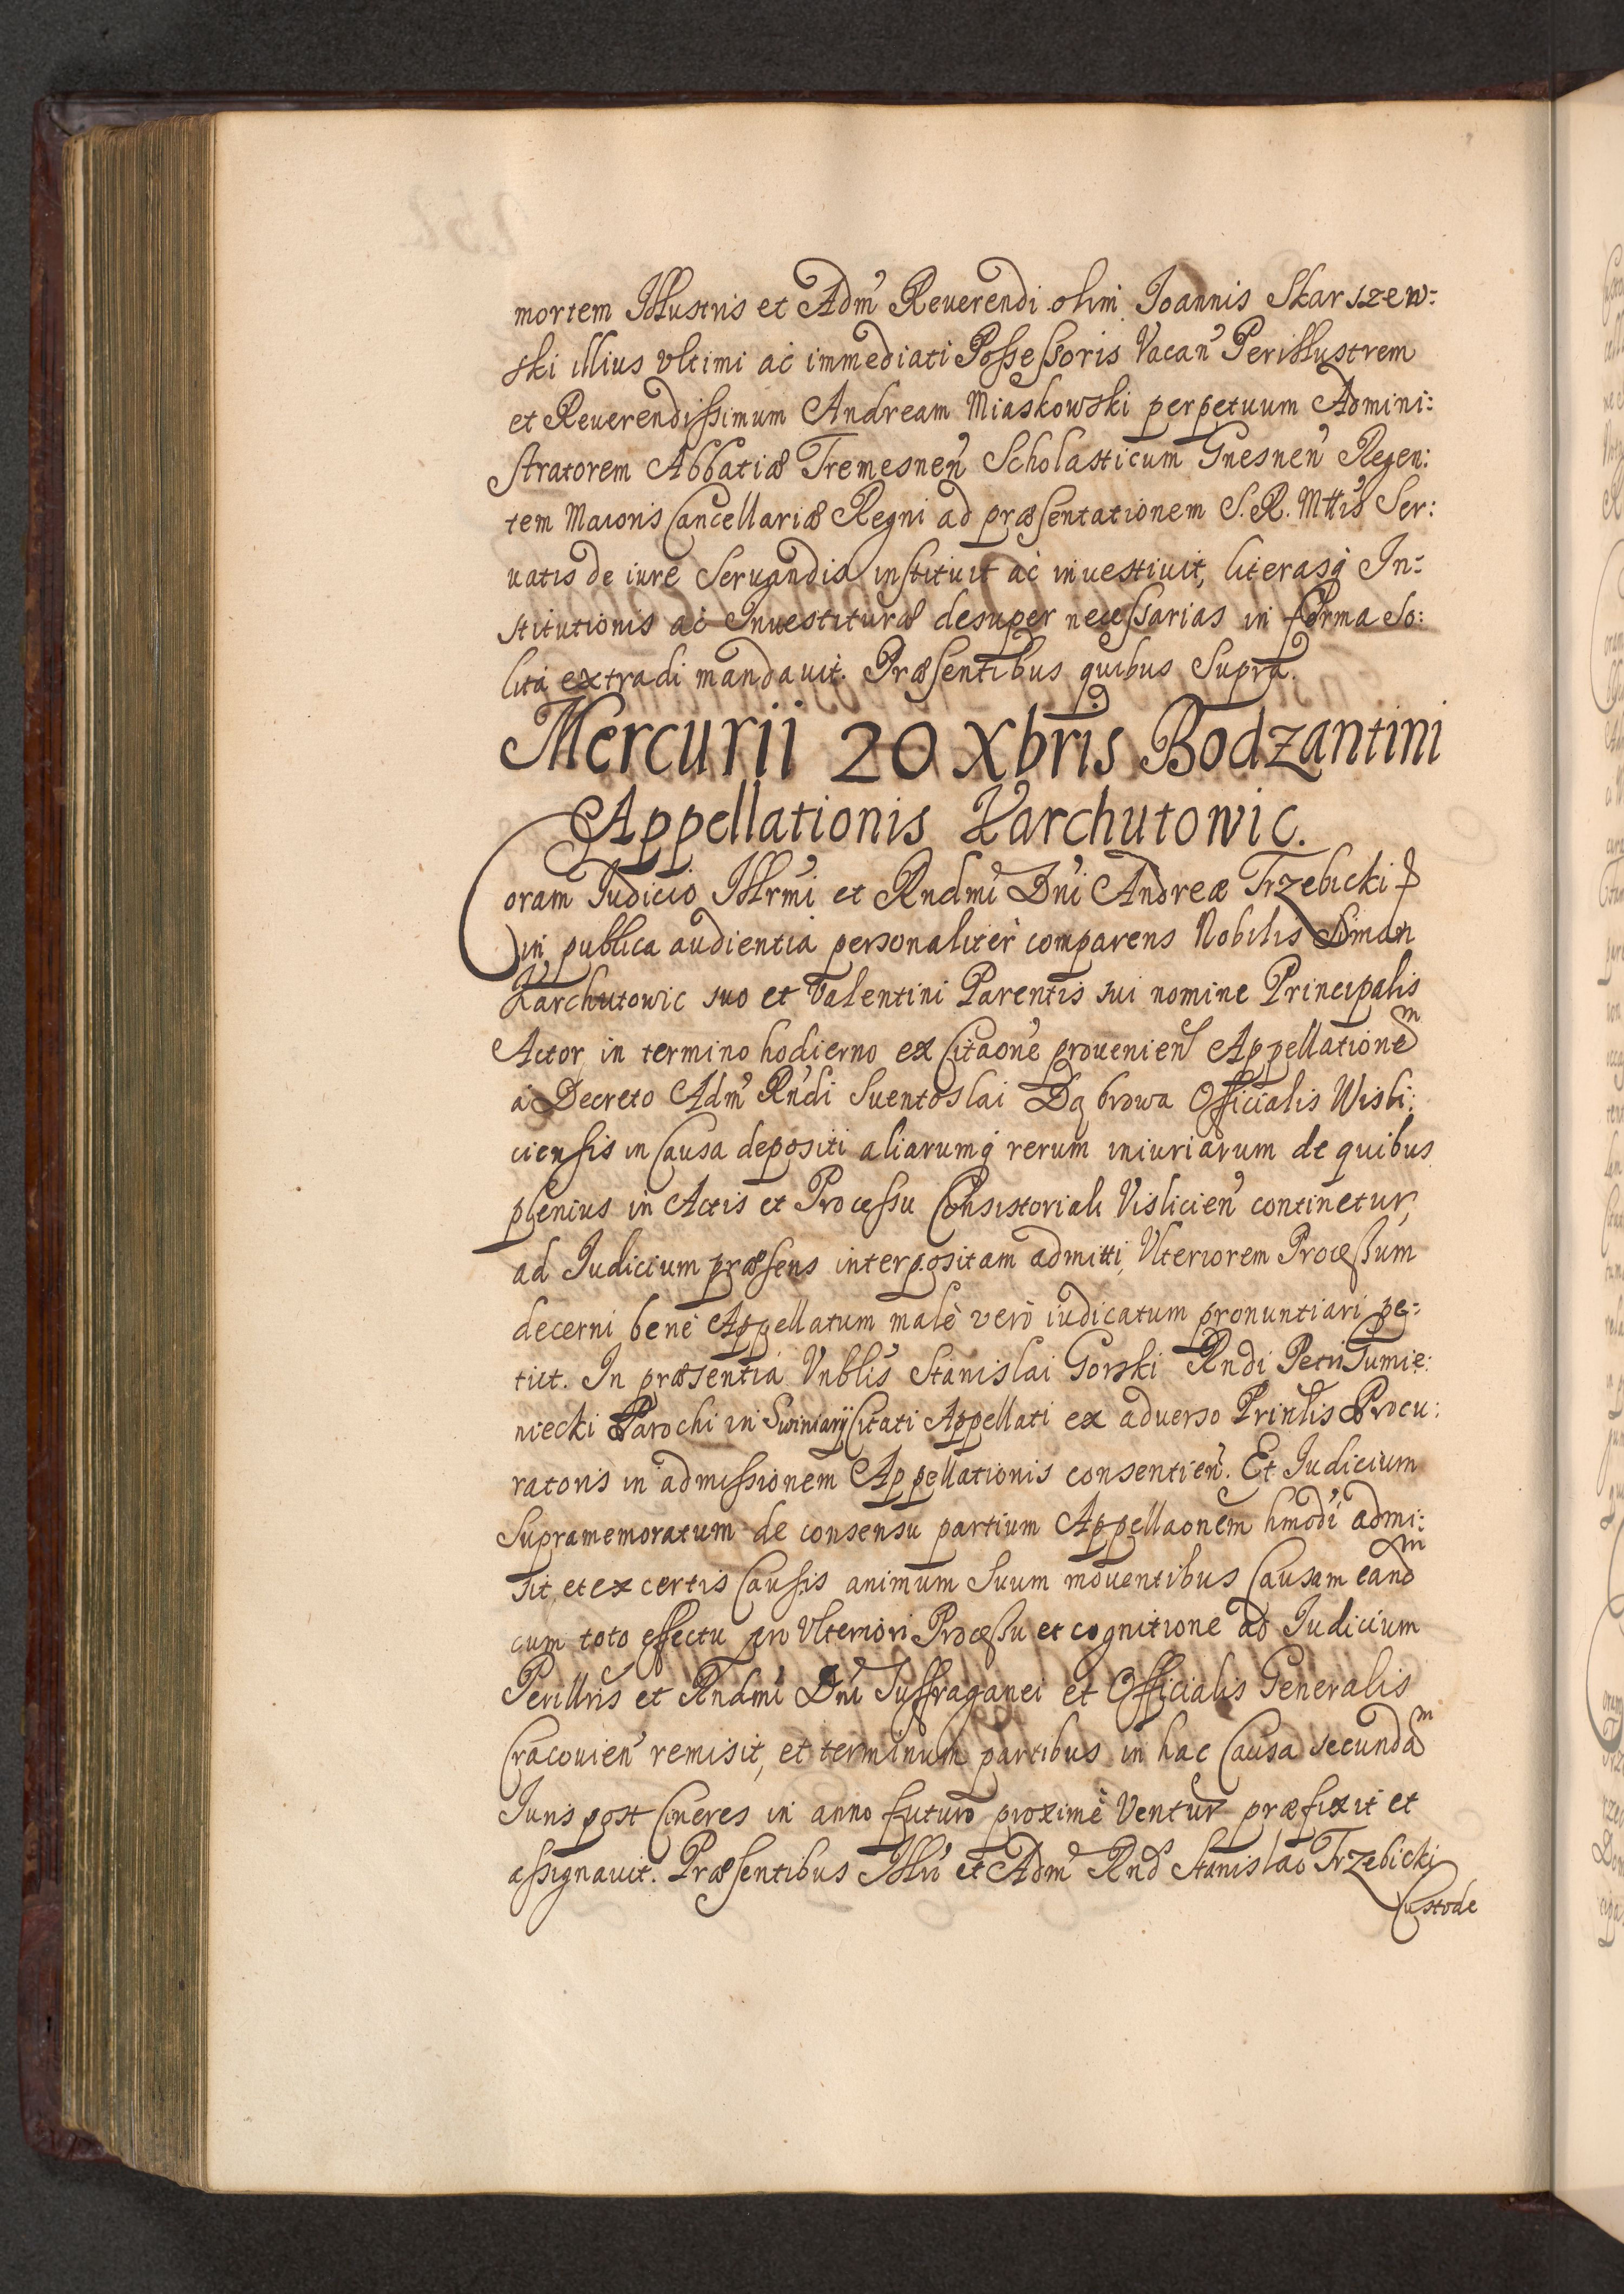 mortem Illustris et Adm' Reuerendi olim Joannis Skarszew:
ski illius vltimi ac immediati Possessoris Vacan' Perillustrem
et Reuerendissimum Andream Miaskowski perpetuum Admini:
stratorem Abbatiæ Tremesnen' Scholasticum Gnesnen' Regen:
tem Maioris Cancellariæ Regni ad præsentationem S. R. Mttis Ser:
uatis de iure Seruandis instituit ac inuestiuit, literasq In:
stitutionis ac Inuestituræ desuper necessarias in forma So:
lita extradi mandauit. Præsentibus quibus Supra.
Mercurii 20 Xbris Bodzantini
Appellationis Karchutowic.
Coram Judicio Illrmi et Rndmi Dni Andreæ Trzebicki
in publica audientia personaliter comparens Nobilis Siman
Karchutowic suo et Valentini Parentis sui nomine Principalis
Actor in termino hodierno ex Citaone prouenien' Appellatione^m
a Decreto Adm' Rndi Suentoslai Dąbrowa Officialis Wisli:
ciensis in Causa depositi aliarumq rerum iniuriarum de quibus
plenius in Actis et Processu Consistoriali Vislicien' continetur,
ad Judicium præsens interpositam admitti, Vlteriorem Processum
decerni bene Appellatum male vero iudicatum pronuntiari pe:
tiit. In præsentia Vnblis Stanislai Gorski Rndi Petri Gumie:
niecki Parochi in Swiniary Citati Appellati ex aduerso Prinlis Procu:
ratoris in admissionem Appellationis consentien'. Et Judicium
Supramemoratum de consensu partium Appellaonem hmodi admi:
sit, et ex certis Causis animum Suum mouentibus Causam eand^m
cum toto effectu pro Vlteriori Processu et cognitione ad Judicium
Perillris et Rndmi Dni Suffraganei et Officialis Generalis
Cracouien' remisit, et terminum partibus in hac Causa secunda^m
Juris post Cineres in anno futuro proxime Ventur præfixit et
assignauit. Præsentibus Illri et Adm' Rnd Stanislao Trzebicki
Custode